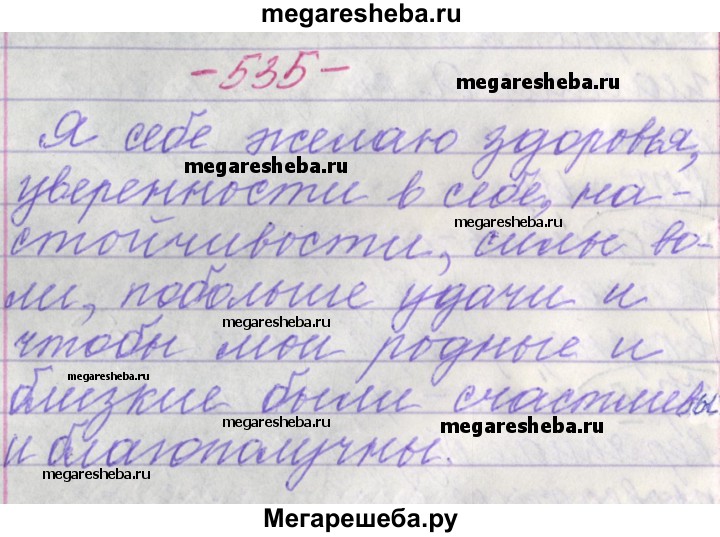 megaresheba.ru
-535-
megaresheba.ru
Я себе желаю здоровья,
megaresheba.ru
уверенности в себе, на-
megaresheba.ru
стойчивости, силы во-
ли, побольше удачи и
megaresheba.ru
чтобы мои родные и
megaresheba.ru
близкие были счастливы
megaresheba.ru
megaresheba.ru
и благополучны.
megaresheba.ru
Мегарешеба.ру